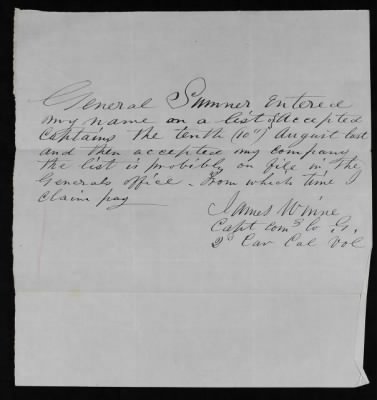 General Sumner entered
my name on a list of accepted
Captains the tenth (10") August last
and then accepted my company
the list is probibly on file in the
Generals office – from which time I
claim pay
James Winne
Capt com^g Co G.
2^d Cav Cal Vol